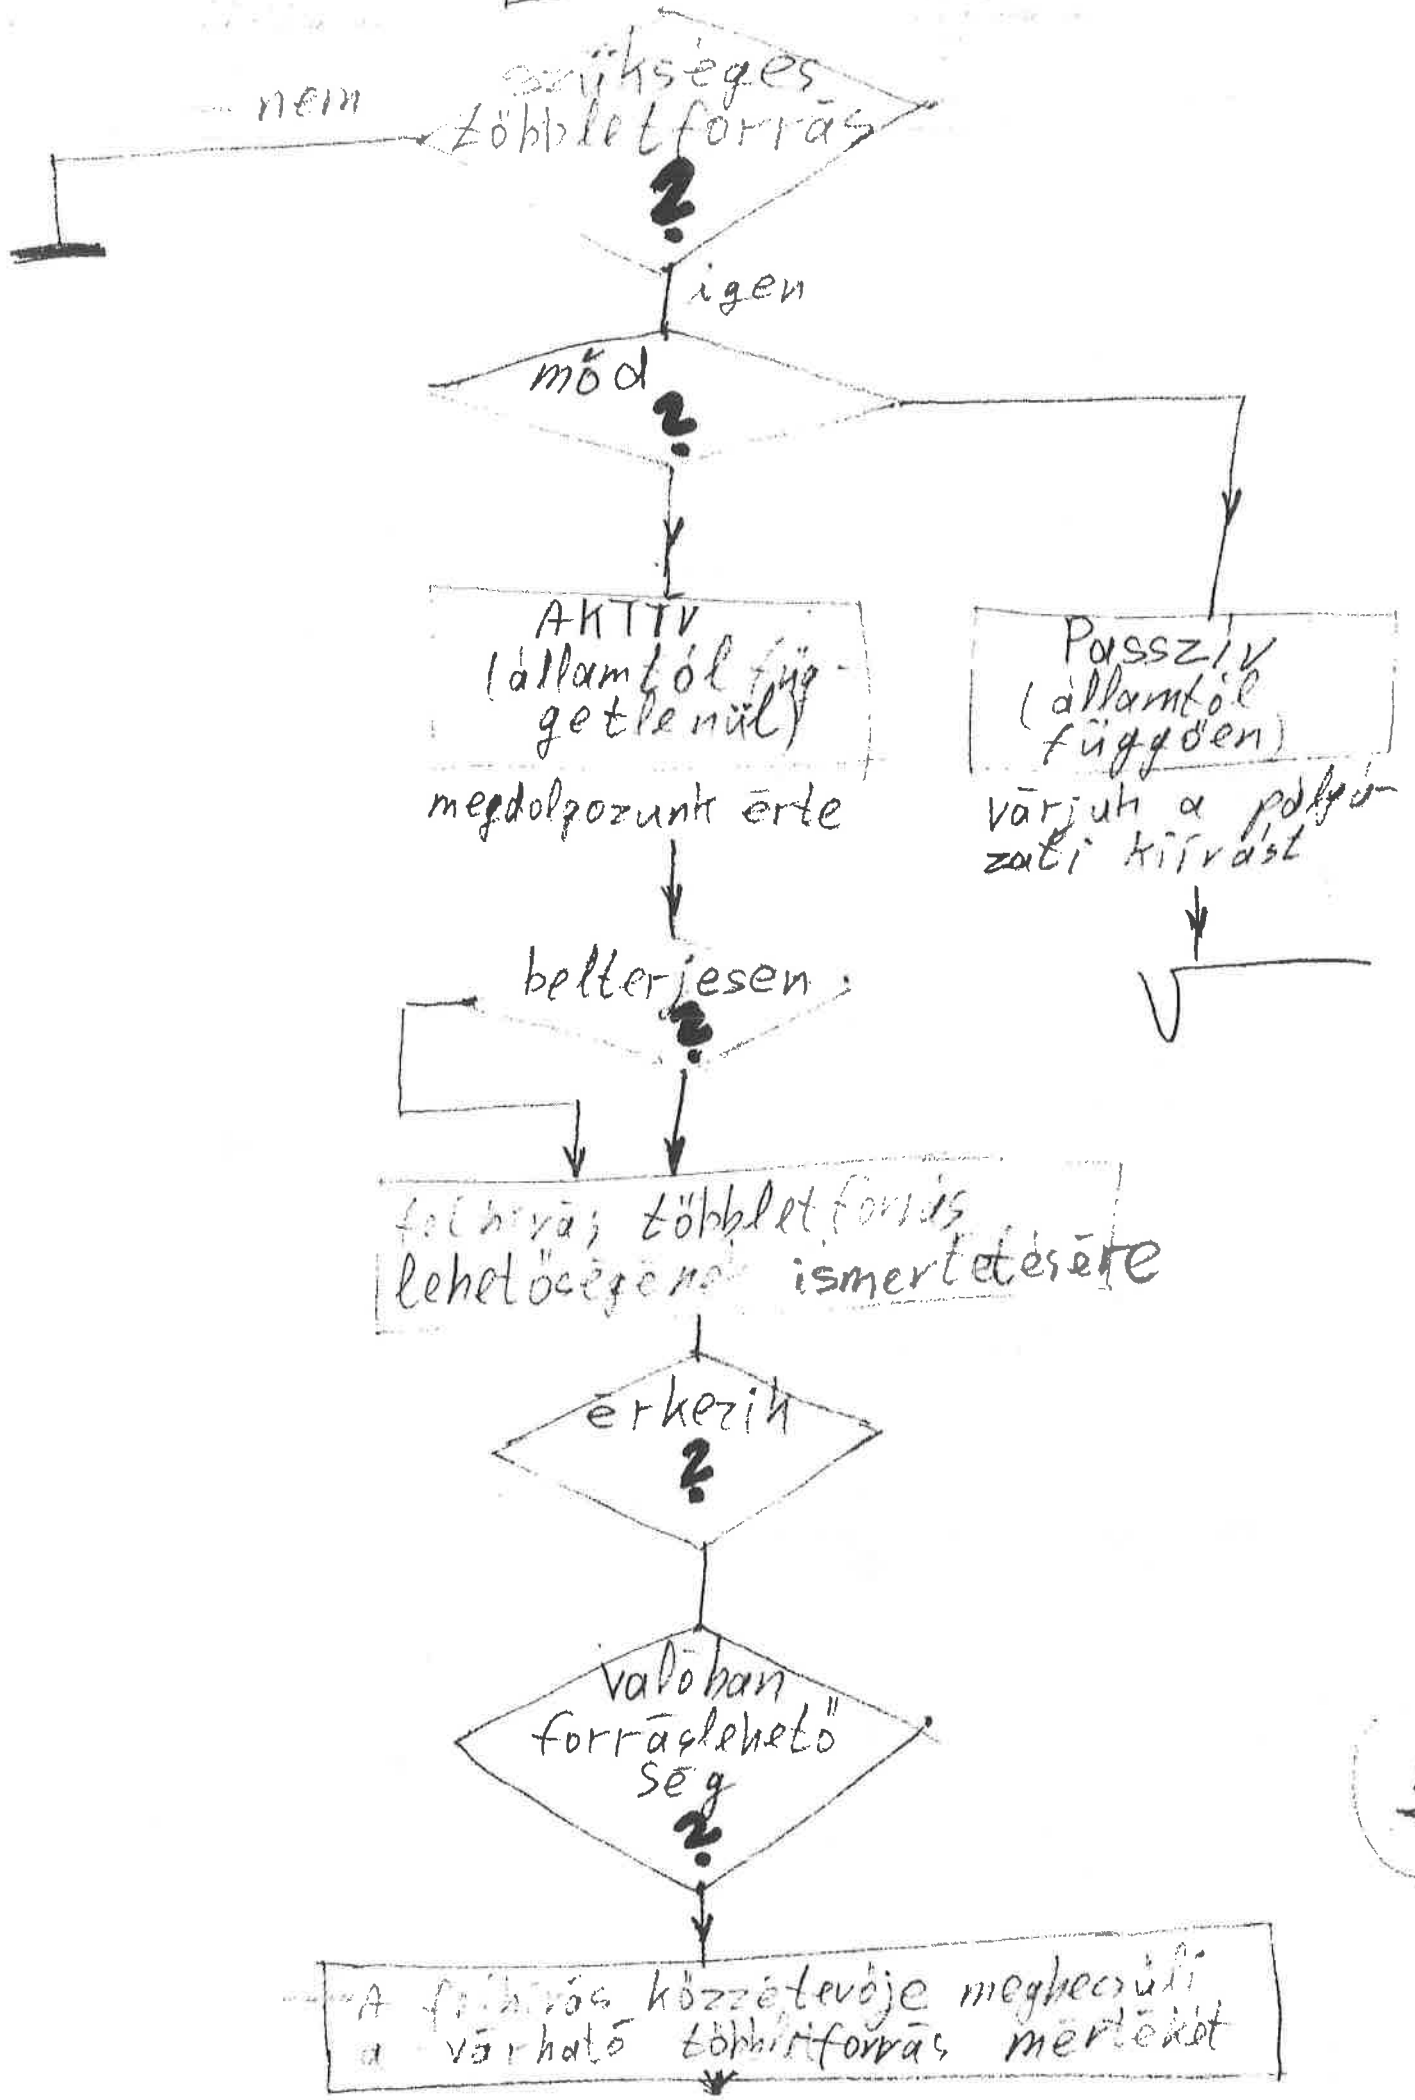 szükséges
többletforrás
?
nem
igen
mód
?
AKTÍV
(államtól füg-
getlenül)
Passzív
(államtól
függően)
megdolgozunk érte
várjuk a pályá-
zati kiírást
belterjesen
?
felhívás többletforrás
lehetőségének ismertetésére
érkezik
?
valóban
forráslehető
ség
?
A felhívás közzétevője megbecsüli
a várható többletforrás mértékét